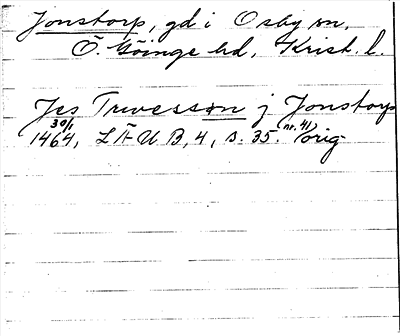 Jonstorp, gd i Osby sn,
Ö. Göinge hd, Krist. l.
Jes Truvesson j Jonstorp
30/1
1464, LÄUB, 4, s. 35. (nr. 41) orig